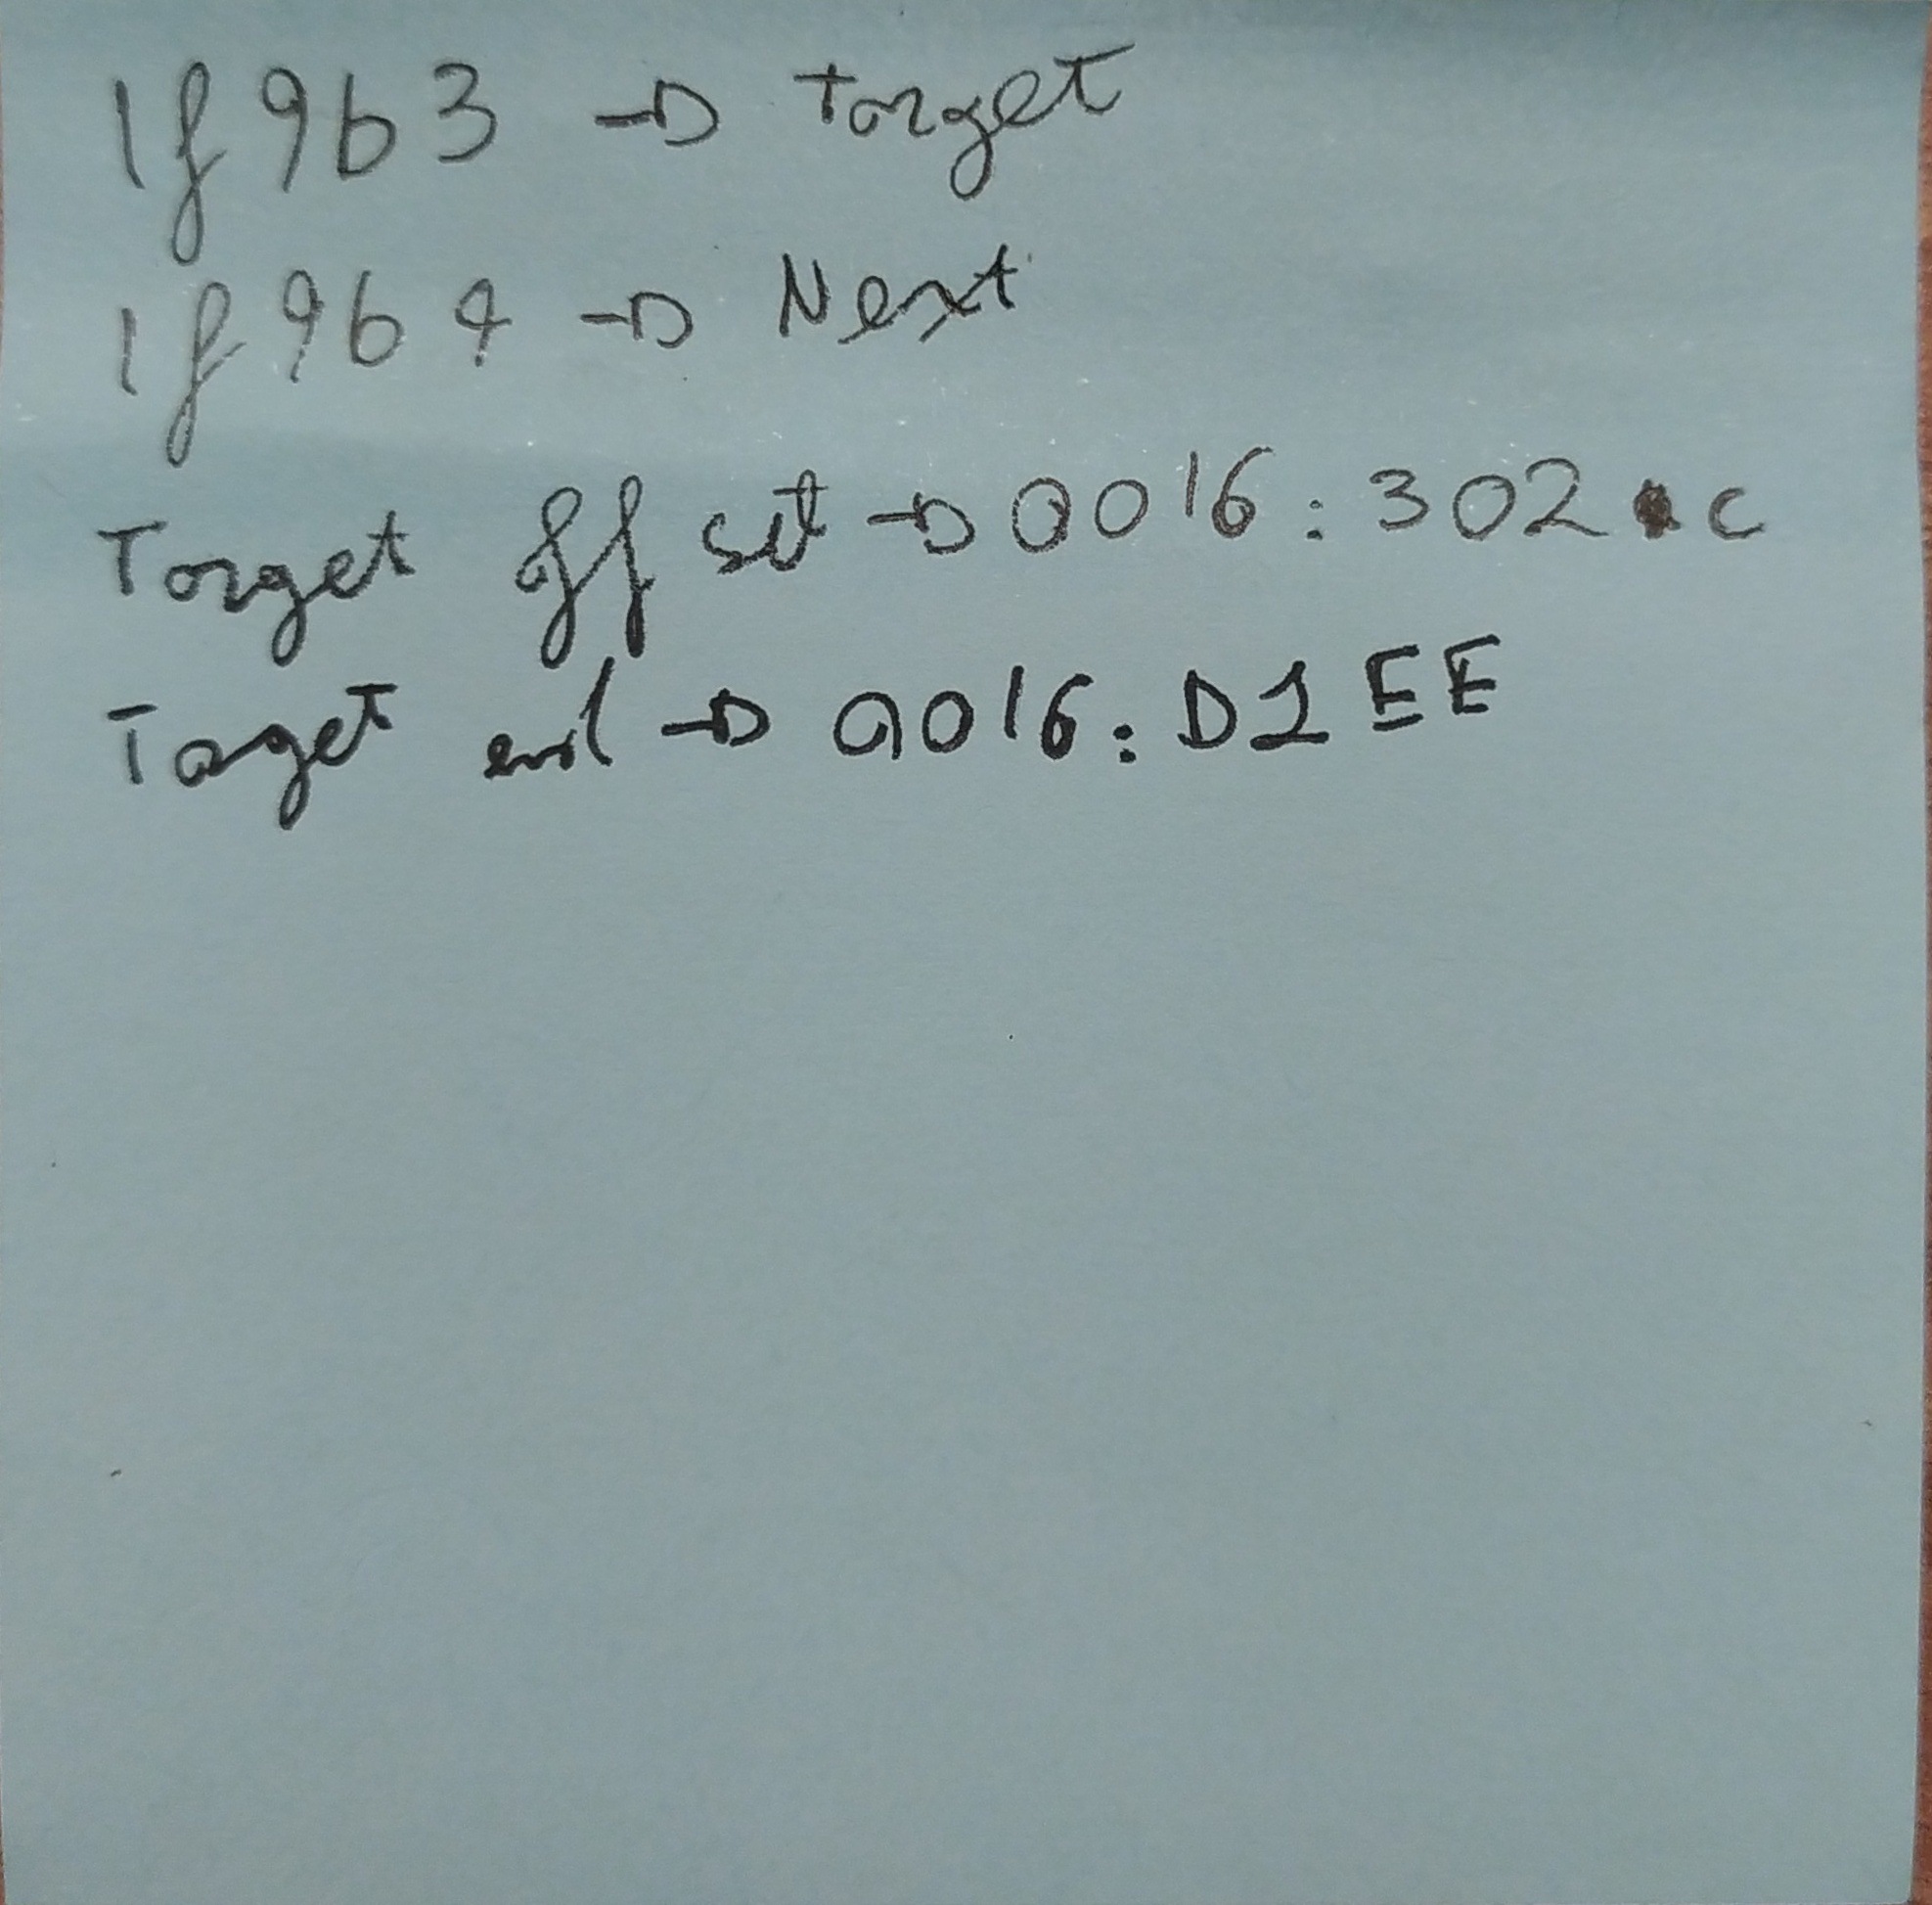 If 963 → Target
If 964 → Next
Target Offset → 0016:302C
Taget end → 0016:D1EE